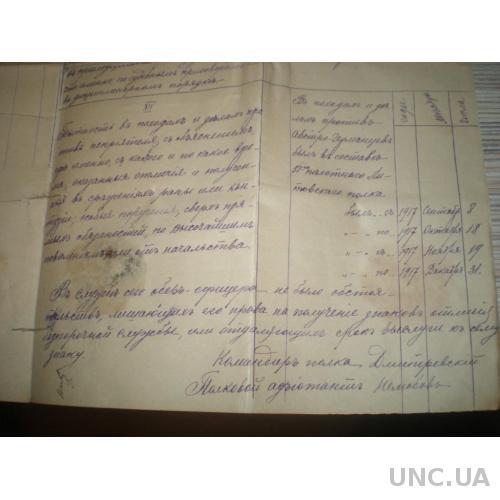 что именно по судебнымъ приговорамъ
въ дисциплинарномъ порядкѣ
XII
Бытность въ походахъ и дѣлахъ про-
тивъ непріятеля, съ объясненіемъ
гдѣ именно, съ какого и по какое вре-
мя, оказанныя отличія и полученныя
въ сраженіяхъ раны или кон-
тузіи; особыя порученія, сверхъ пря-
мыхъ обязанностей, по Высочайшимъ
повелѣніямъ или отъ начальства
Въ походахъ и дѣ-
лахъ противъ
Австро-Германцевъ
былъ въ составѣ
51го пѣхотнаго Ли-
товскаго полка
былъ съ 1917 Сентябр 8
" - " по 1917 Октября 18
" - " съ 1917 Ноября 19
" - " по 1917 Декабря 31.
Въ службѣ сего оберъ-офицера не было обстоя-
тельствъ, лишающихъ его права на полученіе знаковъ отличія
безпорочной службы, или отдаляющихъ срокъ выслуги къ сему
знаку.
Командиръ полка Дмитревскій
Полковой адъютантъ
UNC.UA